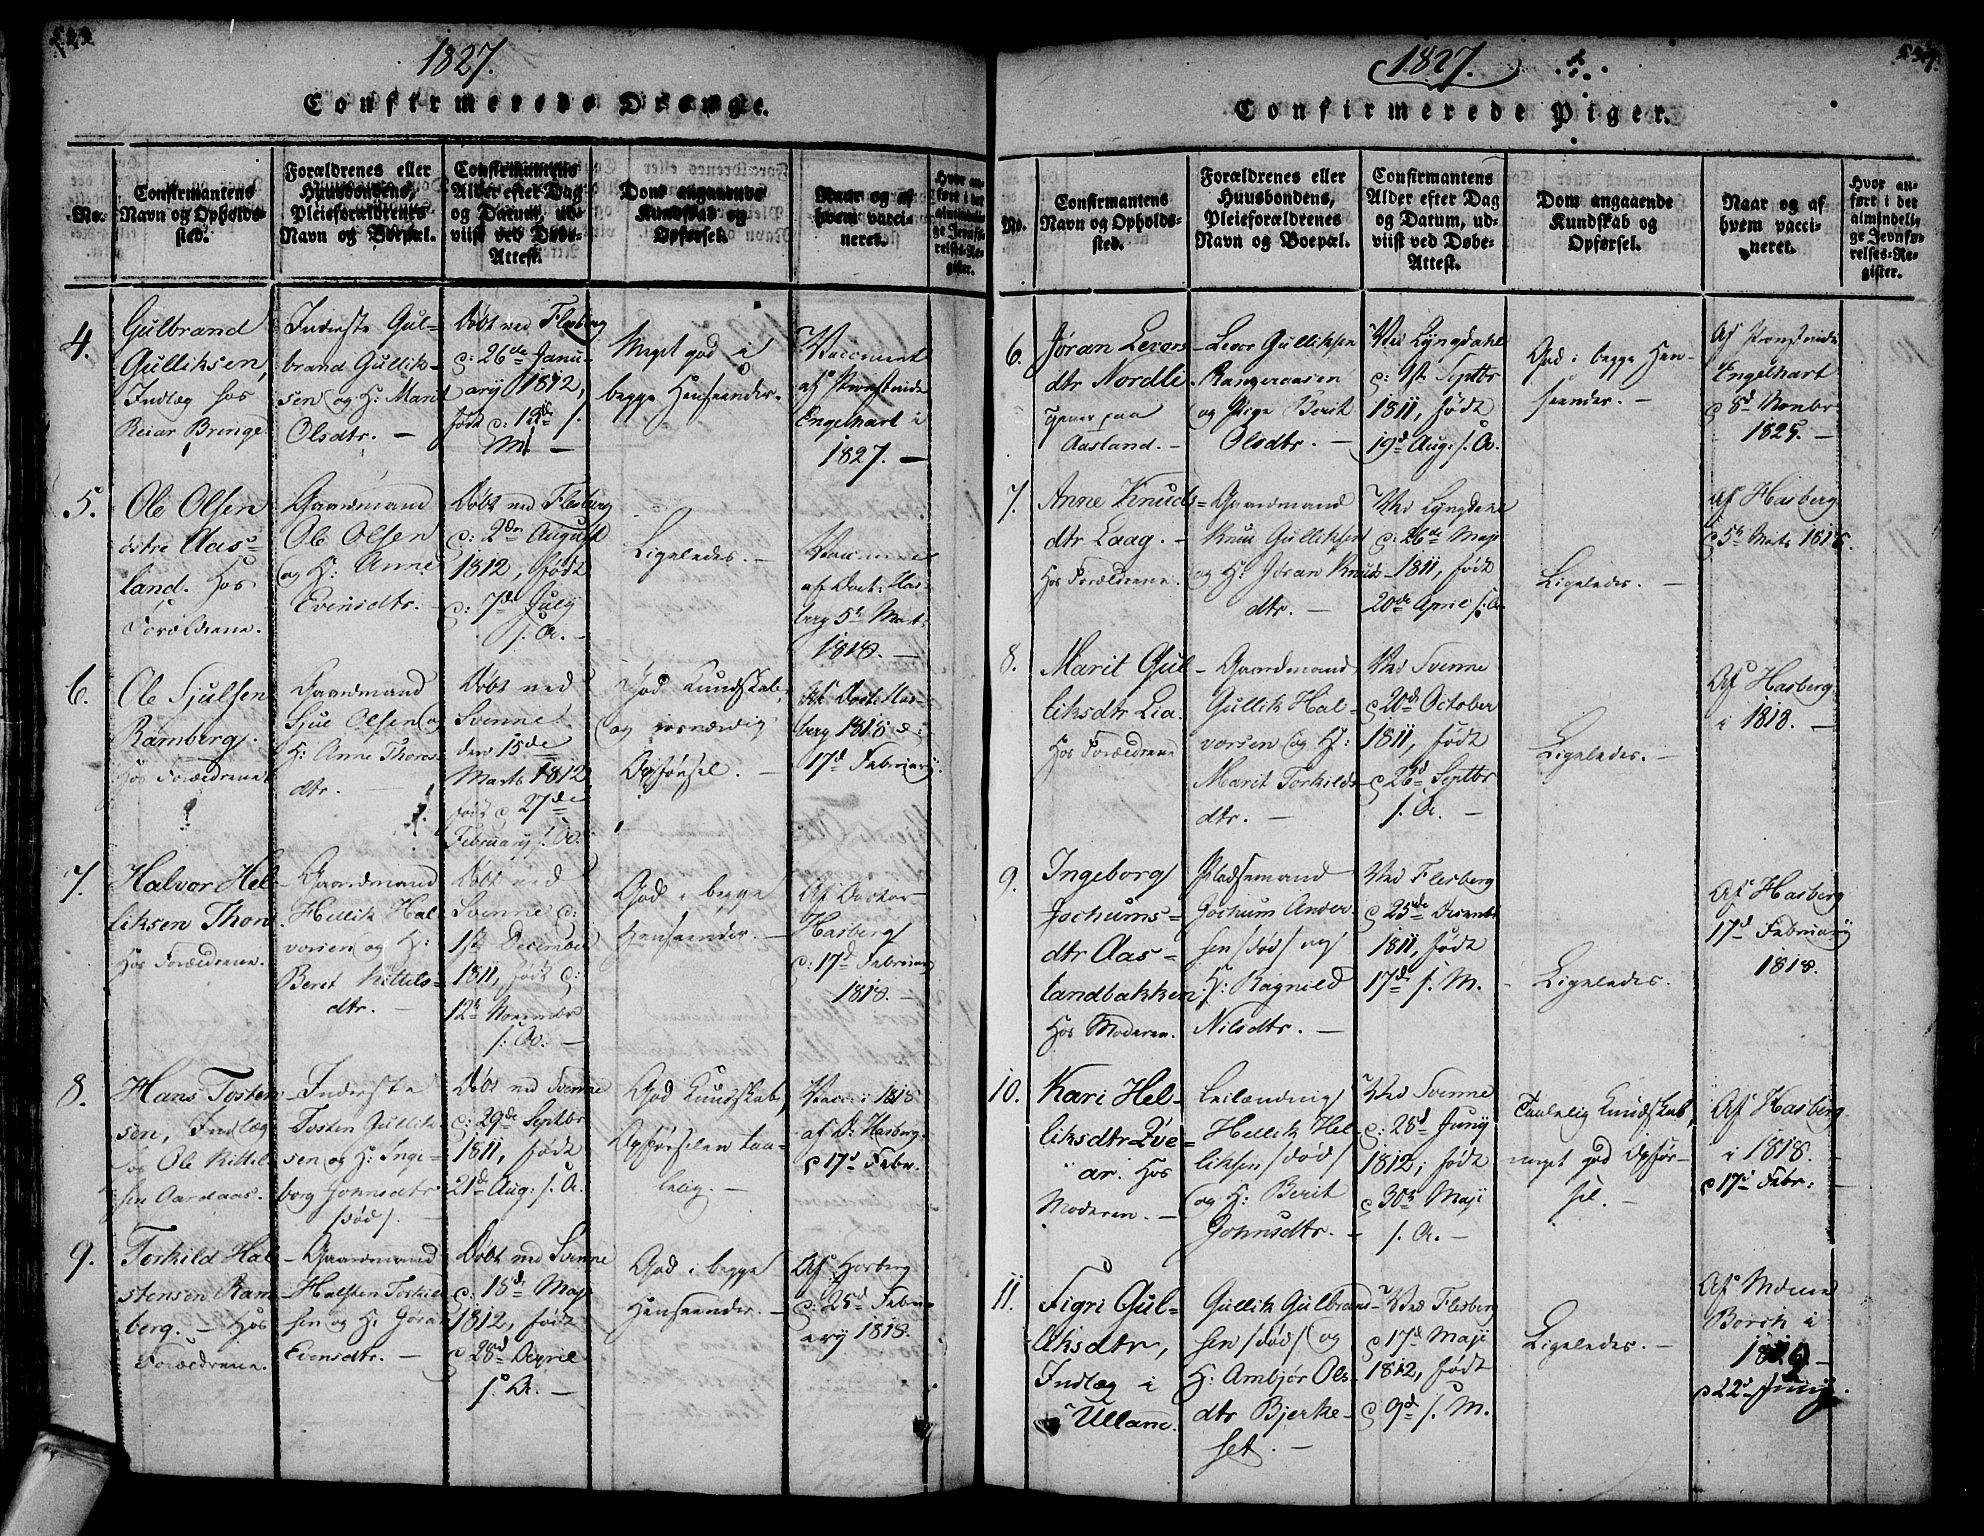 1827.
Confirmerede Drenge.
No.
Confirmantens
Navn og Opholds-
sted.
Forældrenes eller
Huusbondens,
Pleieforældrenes
Navn og Boepæl.
Confirmantens
Alder efter Dag
og Datum, ud-
viist ved Døbe-
Attest.
Dom angaaende
Kundskab og
Opførsel.
Naar og af
hvem vacci-
neret.
Hvor an-
ført i det
almindeli-
ge Jevnfø-
relses-Re-
gister.
4.
Gulbrand
Gulliksen,
Indlæg hos
Reiar Bringe
Inderste Gul-
brand Gullik-
sen og H: Marit
Olsdtr. —
Døbt ved Flesberg
d: 26de Janu-
ary 1812,
født d: 12te s.
M. —
Meget god i
begge Henseender.
Vaccineret
af Provstinde
Engelhart i
1827. —
5.
Ole Olsen
østre Aas-
land. Hos
Forældrene.
Gaardmand
Ole Olsen
og H: Anne
Evensdtr. —
Døbt ved Flesberg
d: 2den August
1812, født
d: 7de July
s. A. —
Ligeledes. —
Vaccineret
af Doct: Has-
berg 5te Mart:
1818. —
6.
Ole Sjulsen
Ramberg.
Hos Forældrene
Gaardmand
Sjul Olsen og
H: Anne Thores-
dtr. —
Døbt ved
Svenne
den 15de
Marts 1812
født d 27de
February s. A.
God Kundskab,
og
Opførsel. —
Af Doct: Has-
berg 1818 d:
17d Februarij.
7.
Halvor Hel-
liksen Thon
Hos Forældrene.
Gaardmand
Hellik Hal-
vorsen og H:
Berit Kittels-
dtr. —
Døbt ved
Svenne d:
1ste December
1811, født d:
12te November
s: A: —
God i begge
Henseender. —
Af Doctor
Hasberg
d: 17d Februar
1818. —
8.
Hans Tosten-
sen, Indlæg
hos Ole Kittel-
sen Aardaas.
Inderste
Tosten Gullik-
sen og H: Inge-
borg Johnsdtr
/død/. —
Døbt ved Svenne
d: 29de Septbr
1811, født
21de Aug: s. A.
God Kundskab,
Opførselen taa-
lelig. —
Vacc: i 1818
af D: Hasberg.
d 17d Febr.
9.
Torkild Hal-
stensen Ram-
berg. — Hos
Forældrene.
Gaardmand
Halsten Torkil-
sen og H: Jøran
Evensdtr. —
Døbt ved Svenne
d: 18de Maji
1812, født
d 28d April
s. A. —
God i begge
Henseender. —
Af Hasberg
d: 25d Febru-
ary 1818.
1827.
Confirmerede Piger.
No.
Confirmantens
Navn og Opholds-
sted.
Forældrenes eller
Huusbondens,
Pleieforældrenes
Navn og Boepæl.
Confirmantens
Alder efter Dag
og Datum, ud-
viist ved Døbe-
Attest.
Dom angaaende
Kundskab og
Opførsel.
Naar og af
hvem vacci-
neret.
Hvor an-
ført i det
almindeli-
ge Jevnfø-
relses-Re-
gister.
6.
Jøran Levors-
dtr Nordli
tjener paa
Aasland.
Levor Gulliksen
Rangeraasen
og Pige Berit
Olsdtr. —
Ved Lyngdahl
d: 1ste Septbr
1811, født
19d Aug: s. A.
God i begge Hen-
seender. —
Af Provstinde
Engelhart
d 8d Novbr:
1825. —
7.
Anne Knuds-
dtr Laag. —
Hos Forældrene.
Gaardmand
Knu Gulliksen
og H: Jøran Knuds-
dtr. —
Ved Lyngdahl
d: 26de Maji
1811, født
20de April s. A.
Ligeledes. —
Af Hasberg
d 5te Marts 1818.
8.
Marit Gul-
liksdtr Lia.
Hos Forældrene
Gaardmand
Gullik Hal-
vorsen og H:
Marit Torkilds-
dtr. —
Ved Svenne
d 20de October
1811, født
d 26d Septbr
s. A. —
Ligeledes. —
Af Hasberg
i 1818. —
9.
Ingeborg
Jochums-
dtr Aas-
landbakken
Hos Moderen.
Pladsemand
Jochum Ander-
sen /død/ og
H: Ragnild
Nilsdtr. —
Ved Flesberg
d 25de Decembr
1811, født
17de s. M.
Ligeledes.
Af Hasberg
17d Februarij
1818.
10.
Kari Hel-
liksdtr Dve-
ar. Hos
Moderen. —
Leilænding
Hellik Hel-
liksen /død/
og H: Berit
Johnsdtr. —
Ved Svenne
d: 28d Junij
1812, født
d 30te Maji
s. A. —
Taalelig Kundskab,
meget god Opfør-
sel. —
Af Hasberg
i 1818. —
d 17d Febr: —
11.
Sigri Gul-
liksdtr,
Indlæg i
Ulland.
Gullik Gulbrand-
sen /død/ og
H: Ambjør Ols-
dtr Bjerke-
set. —
Ved Flesberg
d 17d Maji
1812, født
d 9d s. M.
Ligeledes. —
Af
Borck i
d 22d Junij.